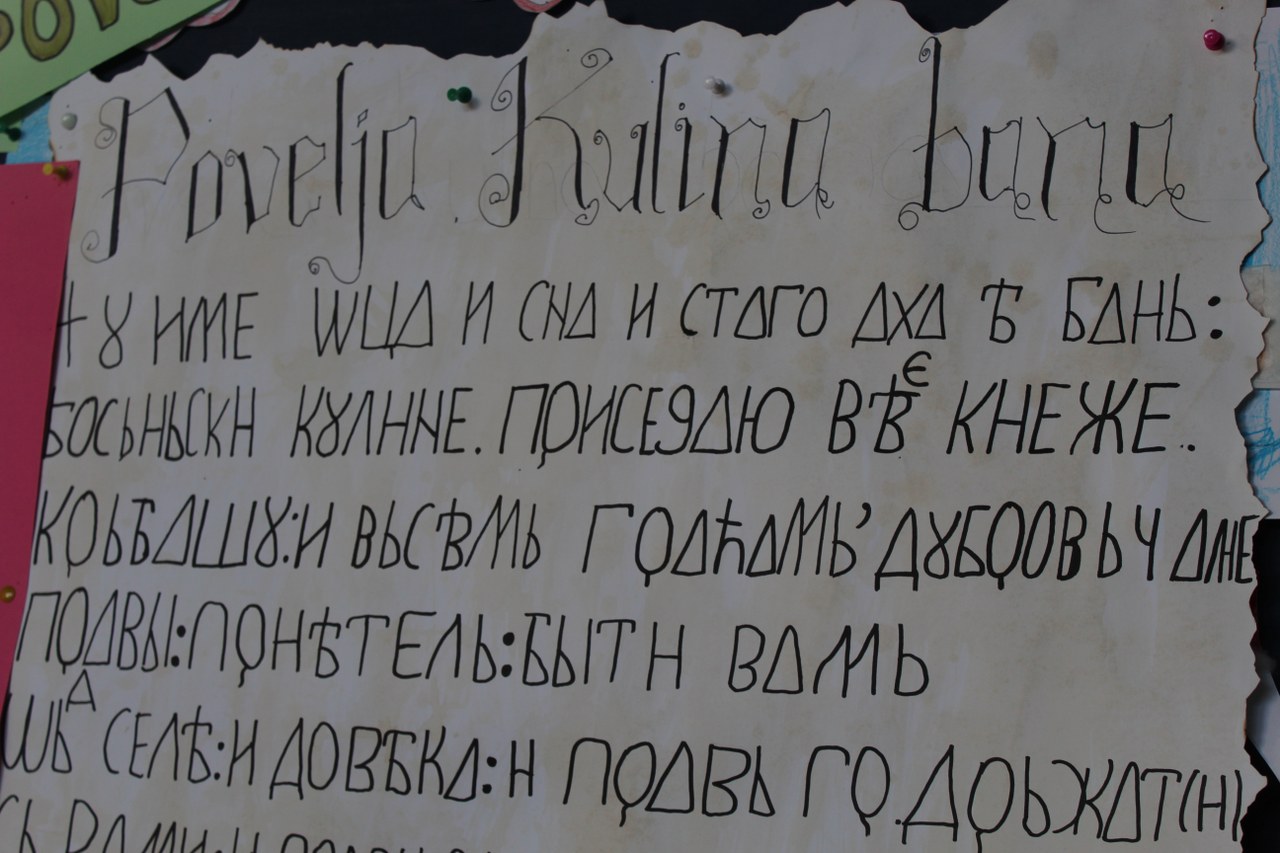 Povelja Kulina bana
+ Ȣ ИМЕ ѠЦА И СНА И СТАГО ДХА Ѣ БАНЬ:
БОСЬНЬСКН КȢЛННЕ. ПРИСЕЗАЮ ВѢ Є КНЕЖЕ..
КРЬВАШȢ:И ВЬСѢМЬ ГРАЋАМЬ' ДȢБРОВЬЧАМЕ
ПРАВЫ:ПРНѢТЕЛЬ:БЫТН ВАМЬ
ѠЬ Д СЕЛѢ:И ДОВѢКА:Н ПРАВЬ ГО.ДРЬЖАТ(Н)